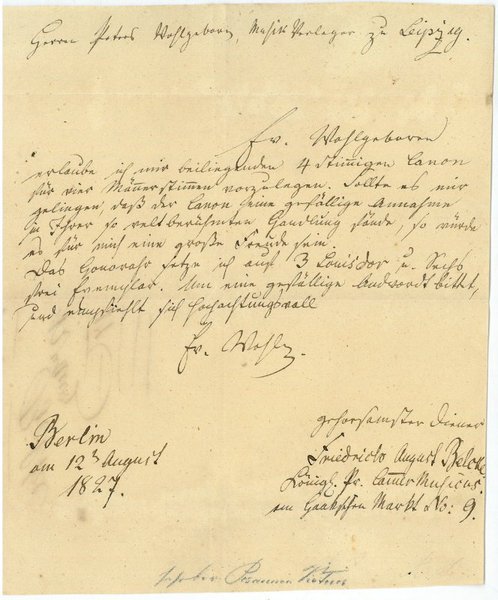 Herrn Peters Wohlgeborn, Musik Verleger zu Leipzig.
Ew. Wohlgeboren
erlaube ich mir beiliegenden 4 stimigen Canon
für vier Männerstimmen vorzulegen. Sollte es mir
gelingen daß der Canon seine gefällige Annahme
in Ihrer so weltberühmten Handlung fände, so würde
es für mich eine große Freude sein.
Das Honorahr setze ich auf 3 Louisdor u. Sechs
frei Exemplar. Um eine gefällige Andwordt bittet,
und empfiehlt sich hochachtungsvoll
Ew. Wohlg.
gehorsamster Diener
Berlin
am 12 August
1827.
Friedrich August Belcke
Königl. Pr. Cammer Musicus.
am Haakschen Markt No: 9.